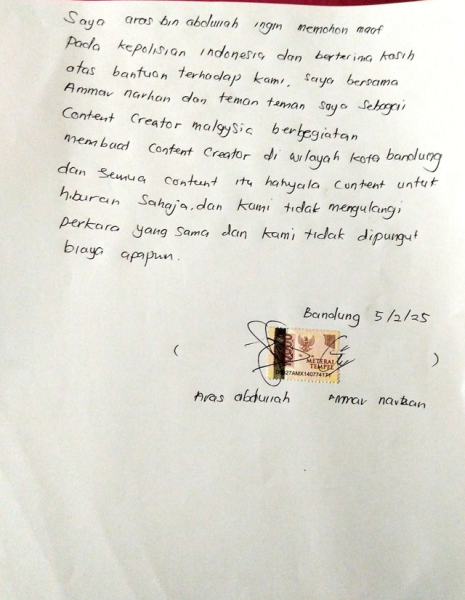 Saya aras bin abdullah ingin memohon maaf
Pada kepolisian indonesia dan berterima kasih
atas bantuan terhadap kami. saya bersama
Ammar narhan dan teman teman saya sebagai
Content Creator malaysia berkegiatan
membuad Content Creator di wilayah kota bandung
dan semua content itu hanyala content untuk
hiburan Sahaja. dan kami tidak mengulangi
perkara yang sama dan kami tidak dipungut
biaya apapun.
Bandung 5/2/25
( )
10000
METERAI
TEMPEL
Aras abdullah Ammar narhan